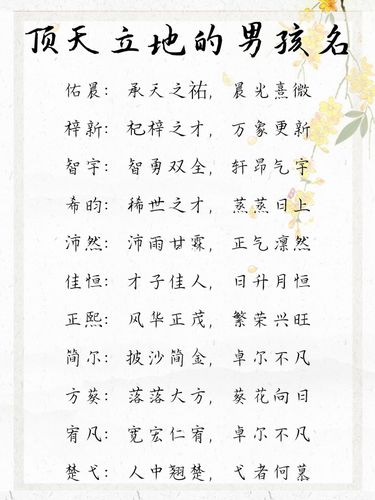 顶天立地的男孩名
佑晨：承天之祐，晨光熹微
梓新：杞梓之才，万象更新
智宇：智勇双全，轩昂气宇
希昀：稀世之才，蒸蒸日上
沛然：沛雨甘霖，正气凛然
佳恒：才子佳人，日升月恒
正熙：风华正茂，繁荣兴旺
简尔：披沙简金，卓尔不凡
方葵：落落大方，葵花向日
宥凡：宽宏仁宥，卓尔不凡
楚弋：人中翘楚，弋者何慕